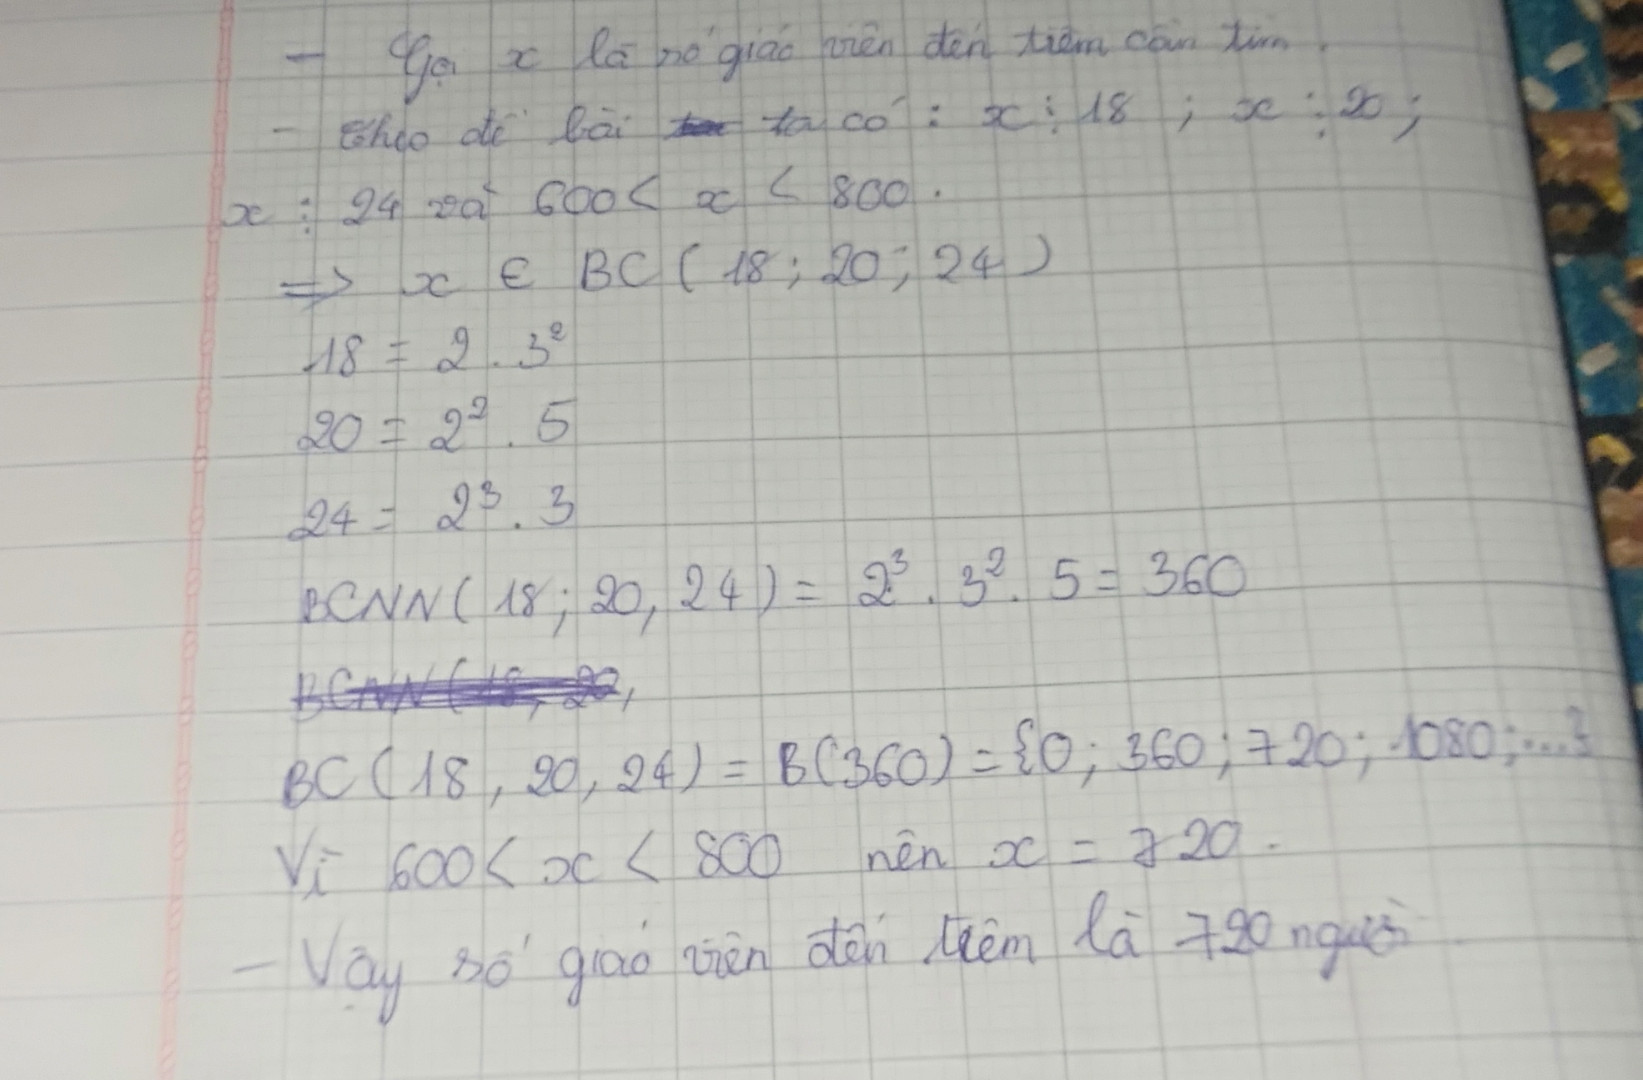 - Gọi x là số giáo viên đến tiêm cần tìm.
- Theo đề bài ta có: x ⋮ 18 ; x ⋮ 20 ;
x ⋮ 24 và 600 < x < 800.
=> x ∈ BC ( 18 ; 20 ; 24 )
18 = 2 . 3²
20 = 2² . 5
24 = 2³ . 3
BCNN ( 18 ; 20, 24 ) = 2³ . 3² . 5 = 360
BCNN ( 18, 20,
BC ( 18 , 20, 24 ) = B(360) = {0 ; 360 ; 720 ; 1080 ; ...}
Vì 600 < x < 800 nên x = 720.
- Vậy số giáo viên đến tiêm là 720 người